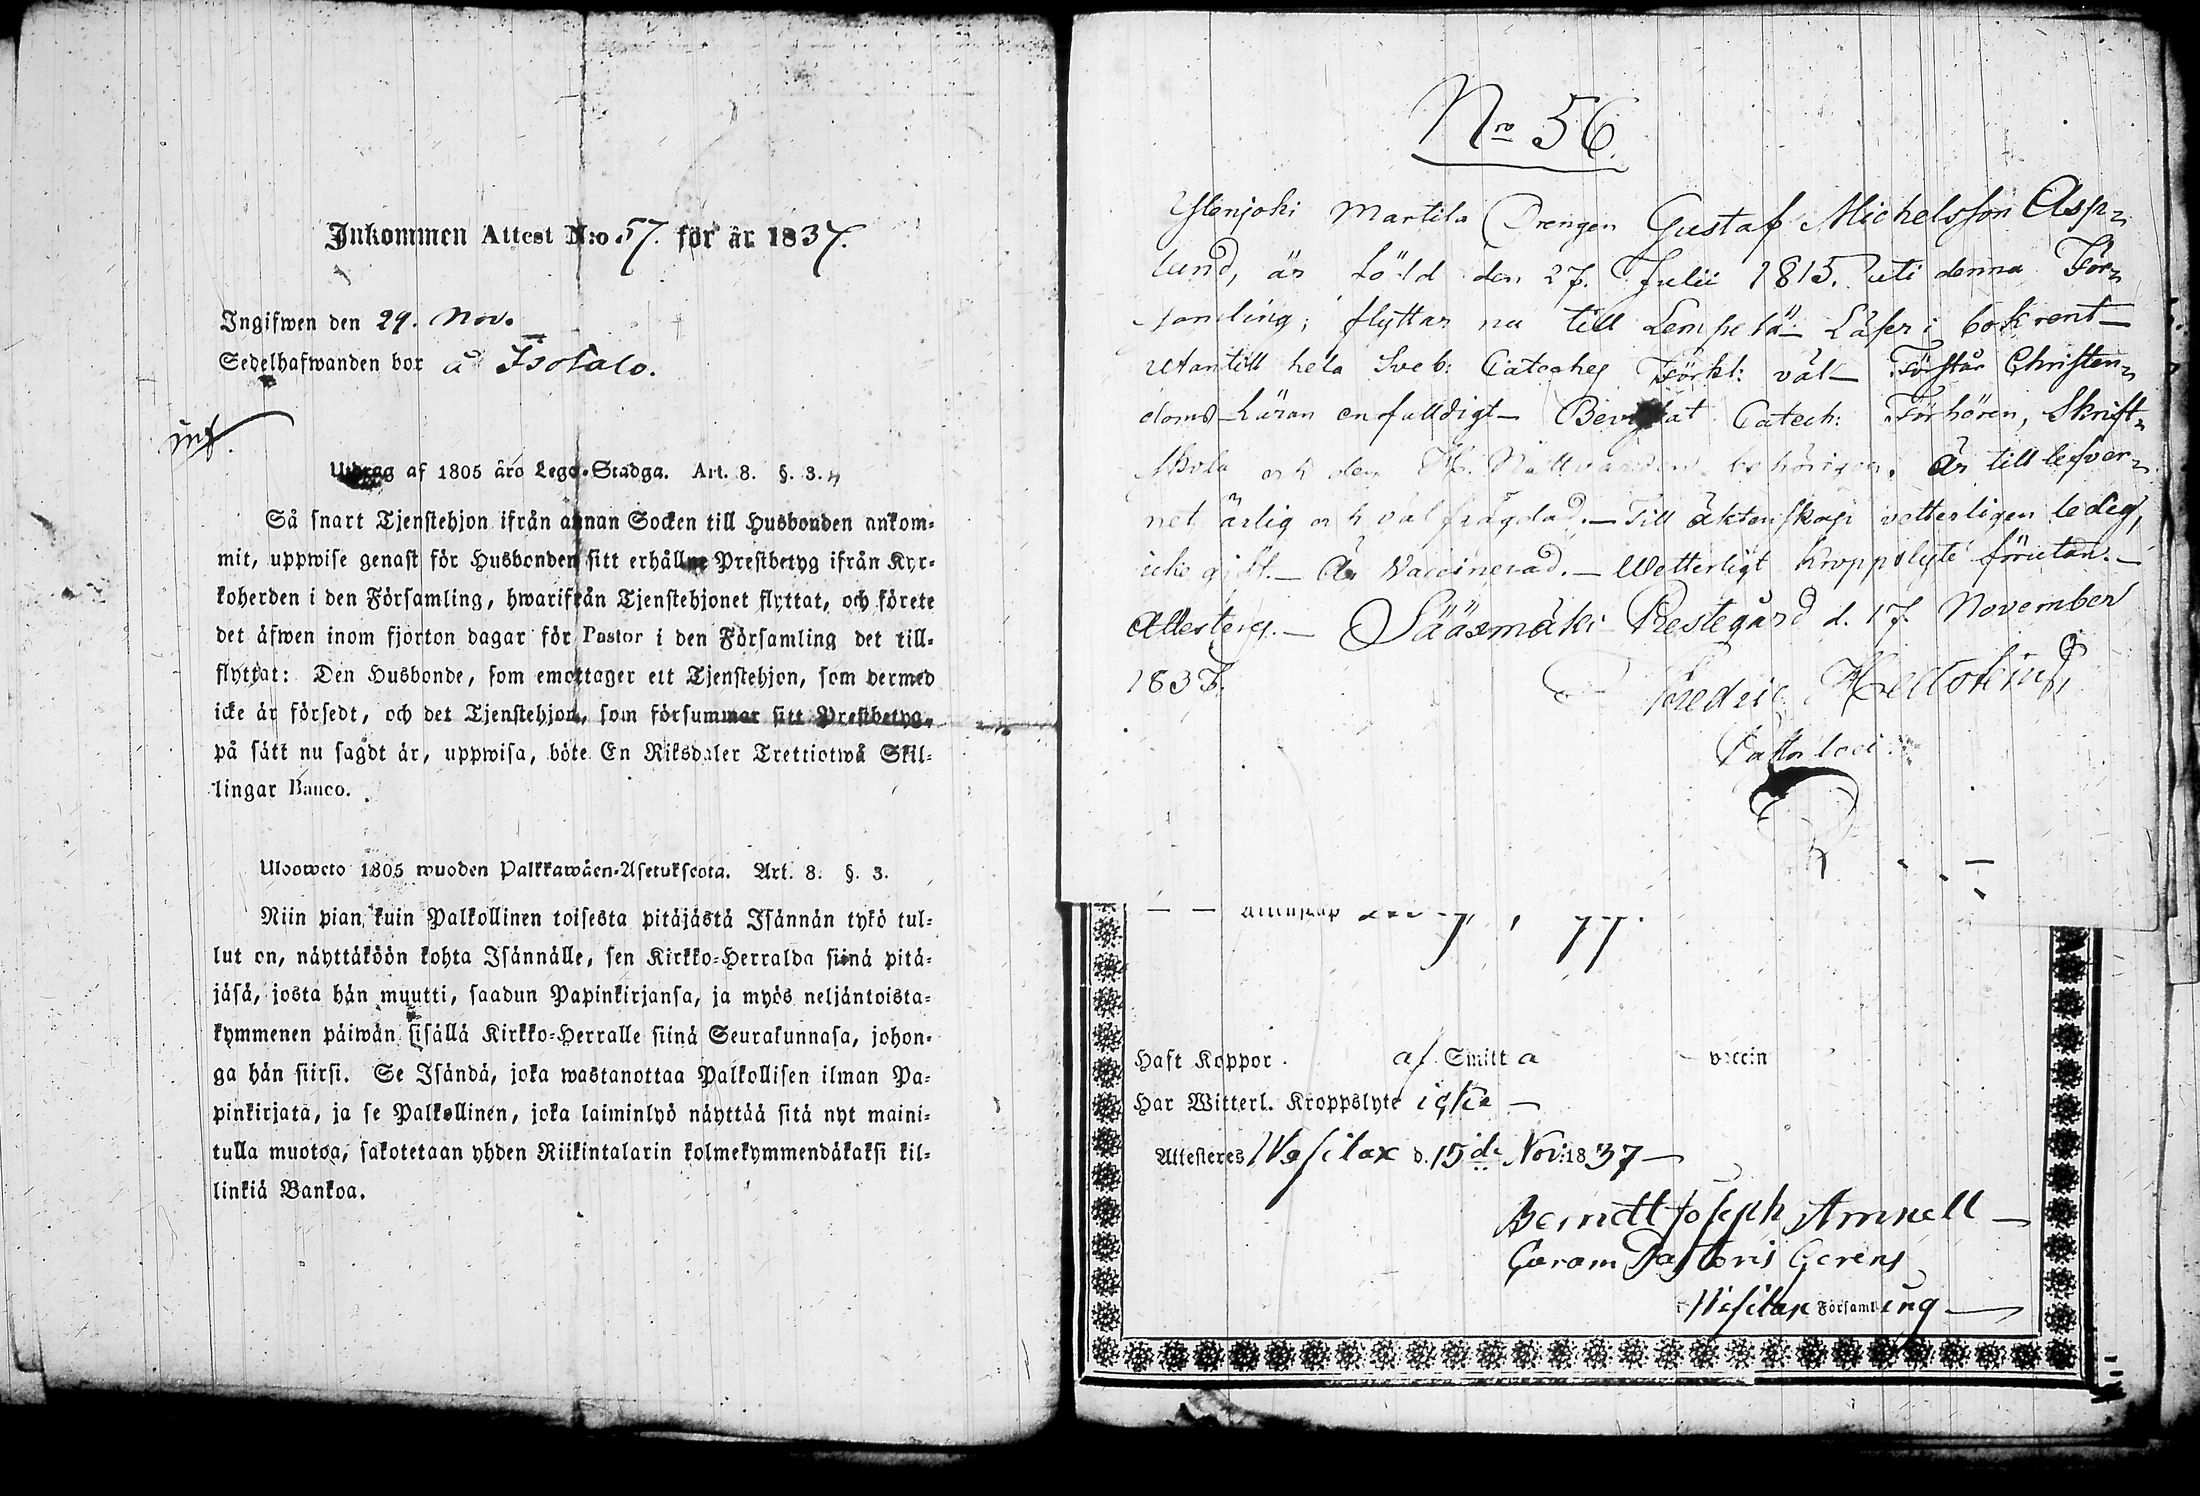 Inkommen Attest N:o 57. för år 1837.
Ingifwen den 29. Nov.
Sedelhafwanden bor å Isotalo.
inf.
Utdrag af 1805 års Lego-Stadga. Art. 8. §. 3.
Så snart Tjenstehjon ifrån annan Socken till Husbonden ankom-
mit, uppwise genast för Husbonden sitt erhållne Prestbetyg ifrån Kyr-
koherden i den Församling, hwarifrån Tjenstehjonet flyttat, och förete
det äfwen inom fjorton dagar för Pastor i den Församling det till-
flyttat: Den Husbonde, som emottager ett Tjenstehjon, som dermed
icke är försedt, och det Tjenstehjon, som försummar sitt Prestbetyg,
på sätt nu sagdt är, uppwisa, böte En Riksdaler Trettiotwå Skil-
lingar Banco.
Ulosweto 1805 wuoden Palkkawäen-Asetuksesta. Art. 8. §. 3.
Niin pian kuin Palkollinen toisesta pitäjästä Isännän tykö tul-
lut on, näyttäköön kohta Isännälle, sen Kirkko-Herralda siinä pitä-
jäsä, josta hän muutti, saadun Papinkirjansa, ja myös neljäntoista-
kymmenen päiwän sisällä Kirkko-Herralle siinä Seurakunnasa, johon-
ga hän siirsi. Se Isändä, joka wastanottaa Palkollisen ilman Pa-
pinkirjata, ja se Palkollinen, joka laiminlyö näyttää sitä nyt maini-
tulla muotoa, sakotetaan yhden Riikintalarin kolmekymmendäkaksi kil-
linkiä Bankoa.
Nro 56.
Ylenjoki Martila Drengen Gustaf Michelsson Asp-
lund, är född den 27. Julii 1815. uti denna För-
samling; flyttar nu till Lempelä - Läser i bok rent -
utantill hela Sveb: Cateches Förkl: väl - Förstår Christen-
doms Läran enfaldigt - Bevistat Catech: Förhören, Skrift-
skola och den H. Nattvarden behörigen. Är till lefver-
net ärlig och välfrägdad. - Till äktenskap vetterligen ledig,
icke gift. - Är Vaccinerad. - Wetterligt kroppslyte förutan. -
Attesteras. - Sääxmäki Prestegård d. 17. November
1837.
Fredric Hellolin
Pastor loci.
Haft Koppor af Smitta vaccin
Har Witterl. Kroppslyte icke -
Attesteres Wesilax d. 15de Nov: 1837 -
Berndt Joseph Amnell -
Curam Pastoris Gerens
i Wesilax Församling -